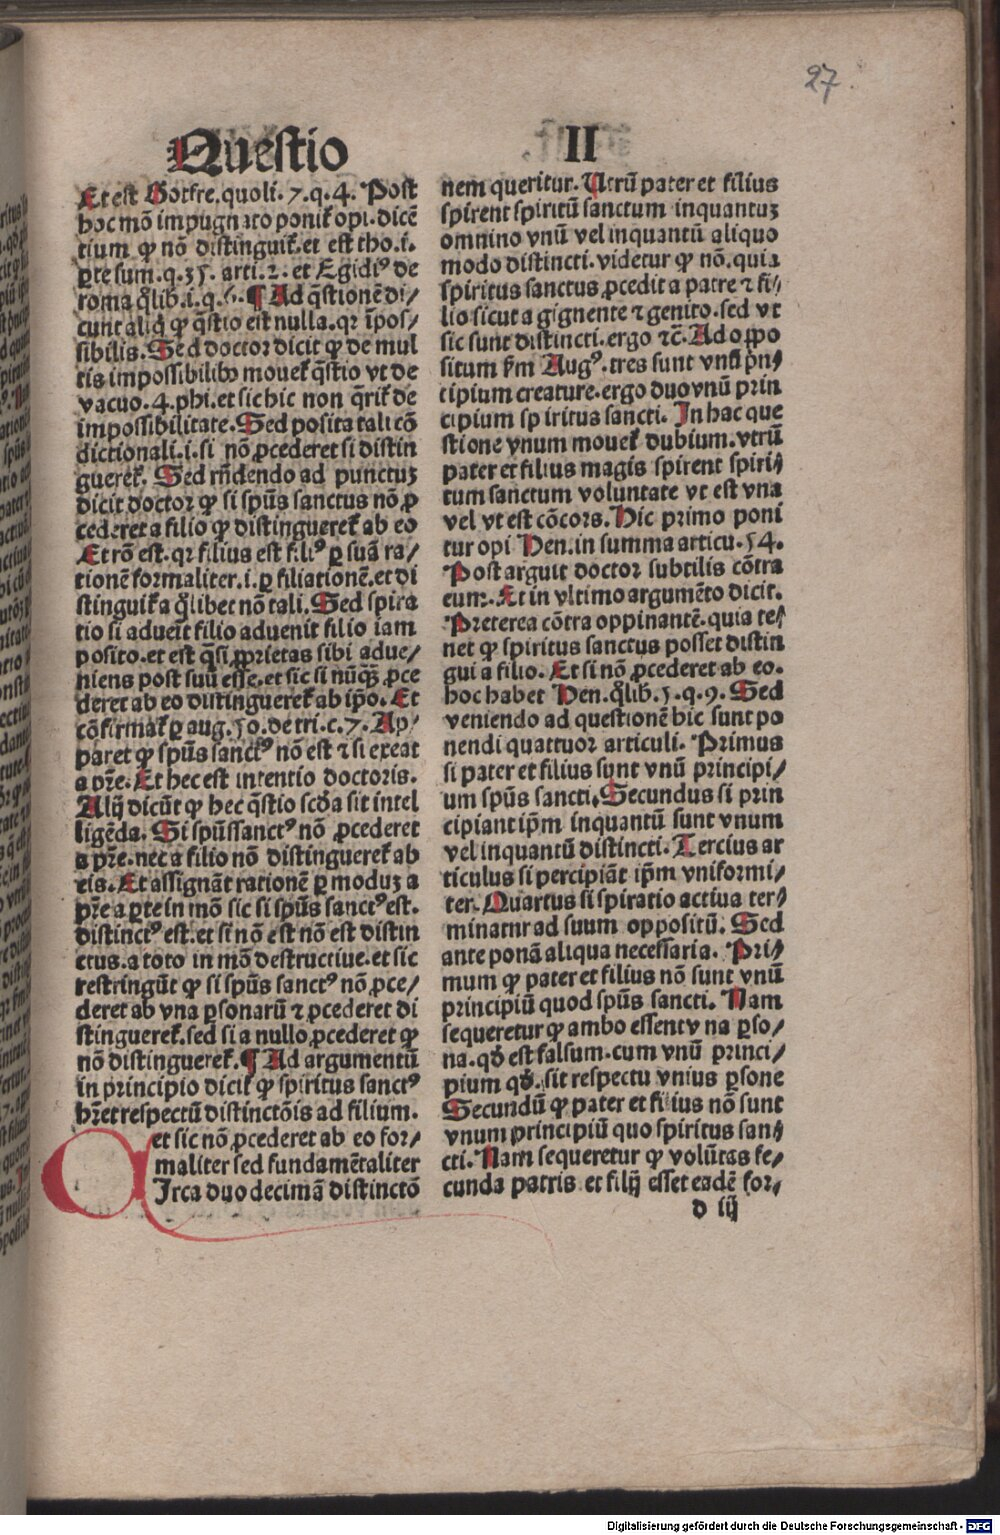 27
Questio II
Et est Gotfre.quoli.7.q.4. Post
hoc mō impugnato ponit̄ opi.dicē
tium ꝙ nō distinguit̄.et est tho.i.
ꝑte sum.q.35. arti.2.et Egidiꝰ de
roma q̄lib.i.q.6.¶ Ad q̄stionē di/
cunt aliq̄ ꝙ q̄stio est nulla.qr īpos/
sibilis. Sed doctor dicit ꝙ de mul
tis impossibilibꝰ mouet̄ q̄stio vt de
vacuo.4.phi.et sic hic non q̄rit̄ de
impossibilitate. Sed posita tali cō
dictionali.i.si nō ꝓcederet si distin
gueret̄. Sed rn̄dendo ad punctuꝫ
dicit doctor ꝙ si spūs sanctus nō ꝓ
cederet a filio ꝙ distingueret̄ ab eo
Et rō est.qr filius est filiꝰ ꝑ suā ra/
tionē formaliter.i.ꝑ filiationē.et di
stinguit̄ a q̄libet nō tali. Sed spira
tio si adueīt filio aduenit filio iam
posito.et est q̄si ꝓprietas sibi adue/
niens post suū esse.et sic si nūq̄ꝫ ꝓce
deret ab eo distingueret̄ ab ip̄o. Et
cōfirmat̄ ꝑ aug.50.de tri.c.7. Ap/
paret ꝙ spūs sanctꝰ nō est ⁊ si exeat
a pr̄e. Et hec est intentio doctoris.
Alij dicūt ꝙ hec q̄stio scd̄a sit intel
ligēda. Si spūssanctꝰ nō ꝓcederet
a pr̄e.nec a filio nō distingueret̄ ab
eis. Et assignāt rationē ꝑ moduꝫ a
pr̄e a ꝑte in mō sic si spūs sanctꝰ est.
distinctꝰ est.et si nō est nō est distin
ctus.a toto in mō destructiue.et sic
restringūt ꝙ si spūs sanctꝰ nō ꝓce/
deret ab vna ꝑsonarū ⁊ ꝓcederet di
stingueret̄.sed si a nullo ꝓcederet ꝙ
nō distingueret̄.¶ Ad argumentū
in principio dicit̄ ꝙ spiritus sanctꝰ
hr̄et respectū distinctōis ad filium.
et sic nō ꝓcederet ab eo for/
maliter sed fundamētaliter
CIrca duodecimā distinctō
nem queritur. Utrū pater et filius
spirent spiritū sanctum inquantuꝫ
omnino vnū vel inquantū aliquo
modo distincti.videtur ꝙ nō.quia
spiritus sanctus ꝓcedit a patre ⁊ fi/
lio sicut a gignente ⁊ genito.sed vt
sic sunt distincti.ergo ⁊c̄. Ad oppo
situm fm̄ Augꝰ.tres sunt vnū prin
cipium creature.ergo duo vnū prin
cipium spiritus sancti. In hac que
stione vnum mouet̄ dubium.vtrū
pater et filius magis spirent spiri/
tum sanctum voluntate vt est vna
vel vt est cōcors. Hic primo poni
tur opi Hen.in summa articu.54.
Post arguit doctor subtilis cōtra
eum. Et in vltimo argumēto dicit.
Preterea cōtra oppinantē.quia te/
net ꝙ spiritus sanctus posset distin
gui a filio. Et si nō ꝓcederet ab eo.
hoc habet Hen.q̄lib.5.q.9. Sed
veniendo ad questionē hic sunt po
nendi quattuor articuli. Primus
si pater et filius sunt vnū principi/
um spūs sancti. Secundus si prin
cipiant ip̄m inquantū sunt vnum
vel inquantū distincti. Tercius ar
ticulus si percipiāt ip̄m vniformi/
ter. Quartus si spiratio actiua ter/
minatnr ad suum oppositū. Sed
ante ponā aliqua necessaria. Pri/
mum ꝙ pater et filius nō sunt vnū
principiū quod spūs sancti. Nam
sequeretur ꝙ ambo essent v na ꝑso/
na.qd̄ est falsum.cum vnū princi/
pium qd̄.sit respectu vnius ꝑsone
Secundū ꝙ pater et filius nō sunt
vnum principiū quo spiritus san/
cti. Nam sequeretur ꝙ volūtas fe/
cunda patris et filij esset eadē for/
d iij
Digitalisierung gefördert durch die Deutsche Forschungsgemeinschaft - DFG